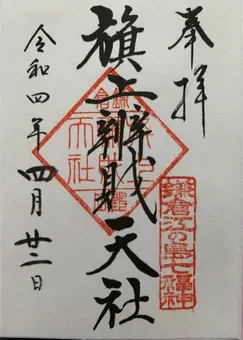 奉拝
旗上辨財天社
鎌倉江の島七福神
令和四年四月廿二日